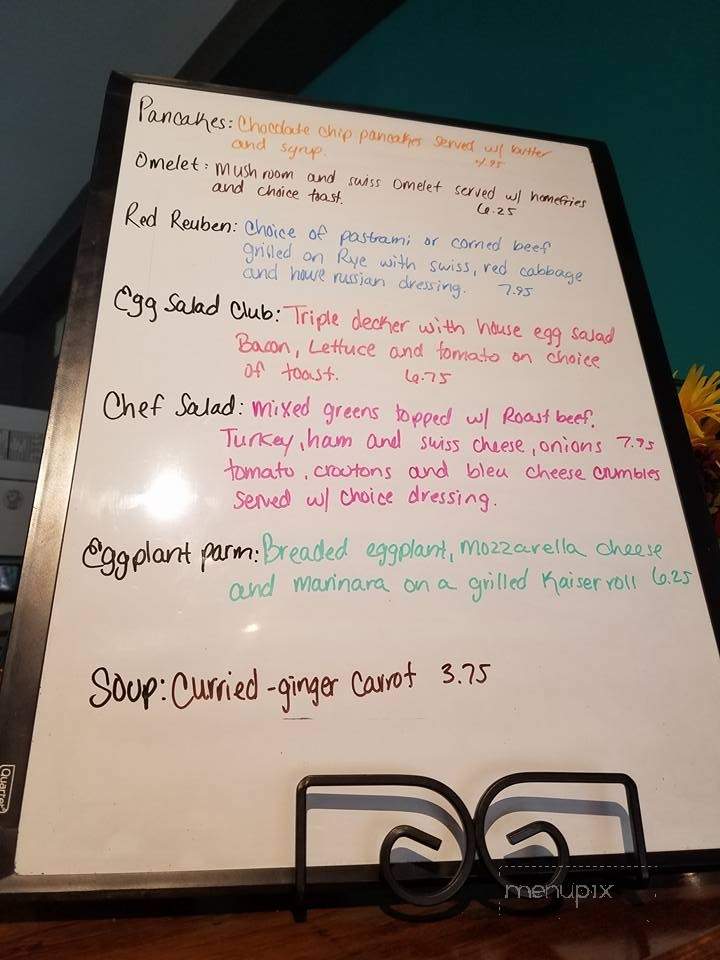 Pancakes: Chocolate chip pancakes served w/ butter
and syrup. 4.95
Omelet: Mushroom and swiss omelet served w/ homefries
and choice toast. 6.25
Red Reuben: Choice of pastrami or corned beef
grilled on Rye with swiss, red cabbage
and house russian dressing. 7.95
Egg Salad Club: Triple decker with house egg salad
Bacon, Lettuce and tomato on choice
of toast. 6.75
Chef Salad: Mixed greens topped w/ Roast beef,
Turkey, ham and swiss cheese, onions 7.95
tomato, croutons and bleu cheese crumbles
Served w/ choice dressing.
Eggplant parm: Breaded eggplant, mozzarella cheese
and marinara on a grilled Kaiser roll 6.25
Soup: Curried-ginger Carrot 3.75
Quartet
menupix